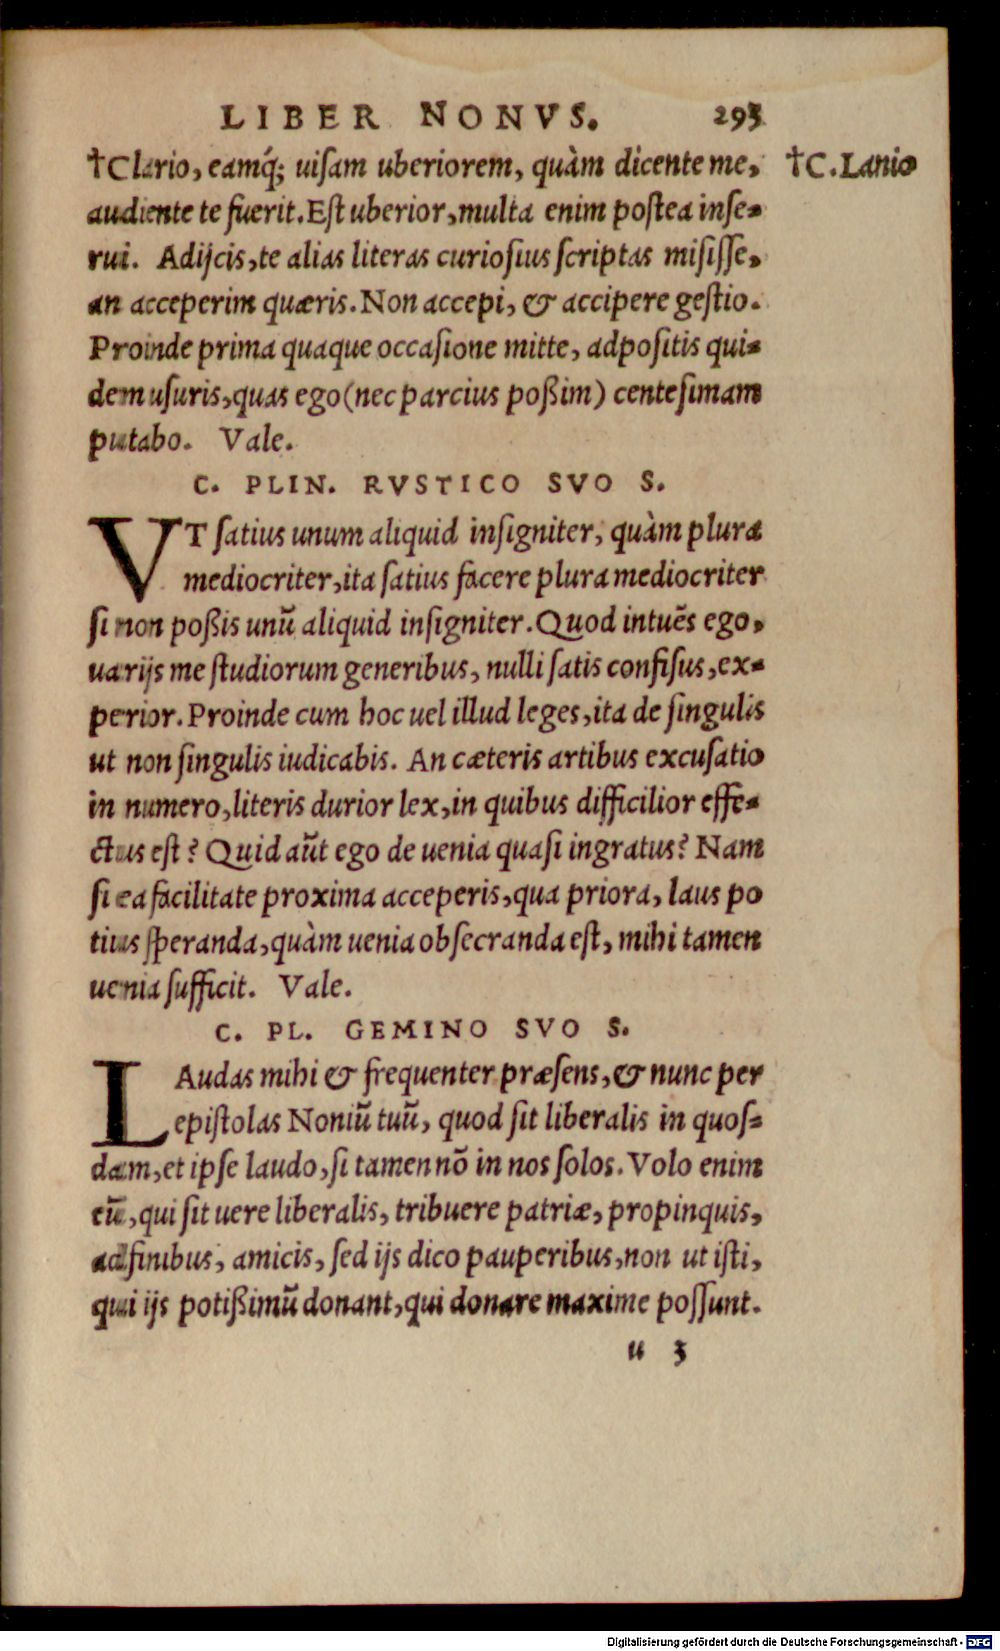 LIBER NONVS. 293
†Clario, eamq́; uiſam uberiorem, quàm dicente me, †C. Lanio
audiente te fuerit. Eſt uberior, multa enim poſtea inſe-
rui. Adijcis, te alias literas curioſius ſcriptas miſiſſe,
an acceperim quæris. Non accepi, & accipere geſtio.
Proinde prima quaque occaſione mitte, adpoſitis qui-
dem uſuris, quas ego (nec parcius poßim) centeſimam
putabo. Vale.
C. PLIN. RVSTICO SVO S.
VT ſatius unum aliquid inſigniter, quàm plura
mediocriter, ita ſatius facere plura mediocriter
ſi non poßis unũ aliquid inſigniter. Quod intuẽs ego,
uarijs me ſtudiorum generibus, nulli ſatis confiſus, ex-
perior. Proinde cum hoc uel illud leges, ita de ſingulis
ut non ſingulis iudicabis. An cæteris artibus excuſatio
in numero, literis durior lex, in quibus difficilior effe-
ctus eſt? Quid aũt ego de uenia quaſi ingratus? Nam
ſi ea facilitate proxima acceperis, qua priora, laus po
tius ſperanda, quàm uenia obſecranda eſt, mihi tamen
uenia ſufficit. Vale.
C. PL. GEMINO SVO S.
LAudas mihi & frequenter præſens, & nunc per
epiſtolas Noniũ tuũ, quod ſit liberalis in quoſ-
dam, et ipſe laudo, ſi tamen nõ in nos ſolos. Volo enim
eũ, qui ſit uere liberalis, tribuere patriæ, propinquis,
adfinibus, amicis, ſed ijs dico pauperibus, non ut iſti,
qui ijs potißimũ donant, qui donare maxime poſſunt.
u 3
Digitalisierung gefördert durch die Deutsche Forschungsgemeinschaft - DFG